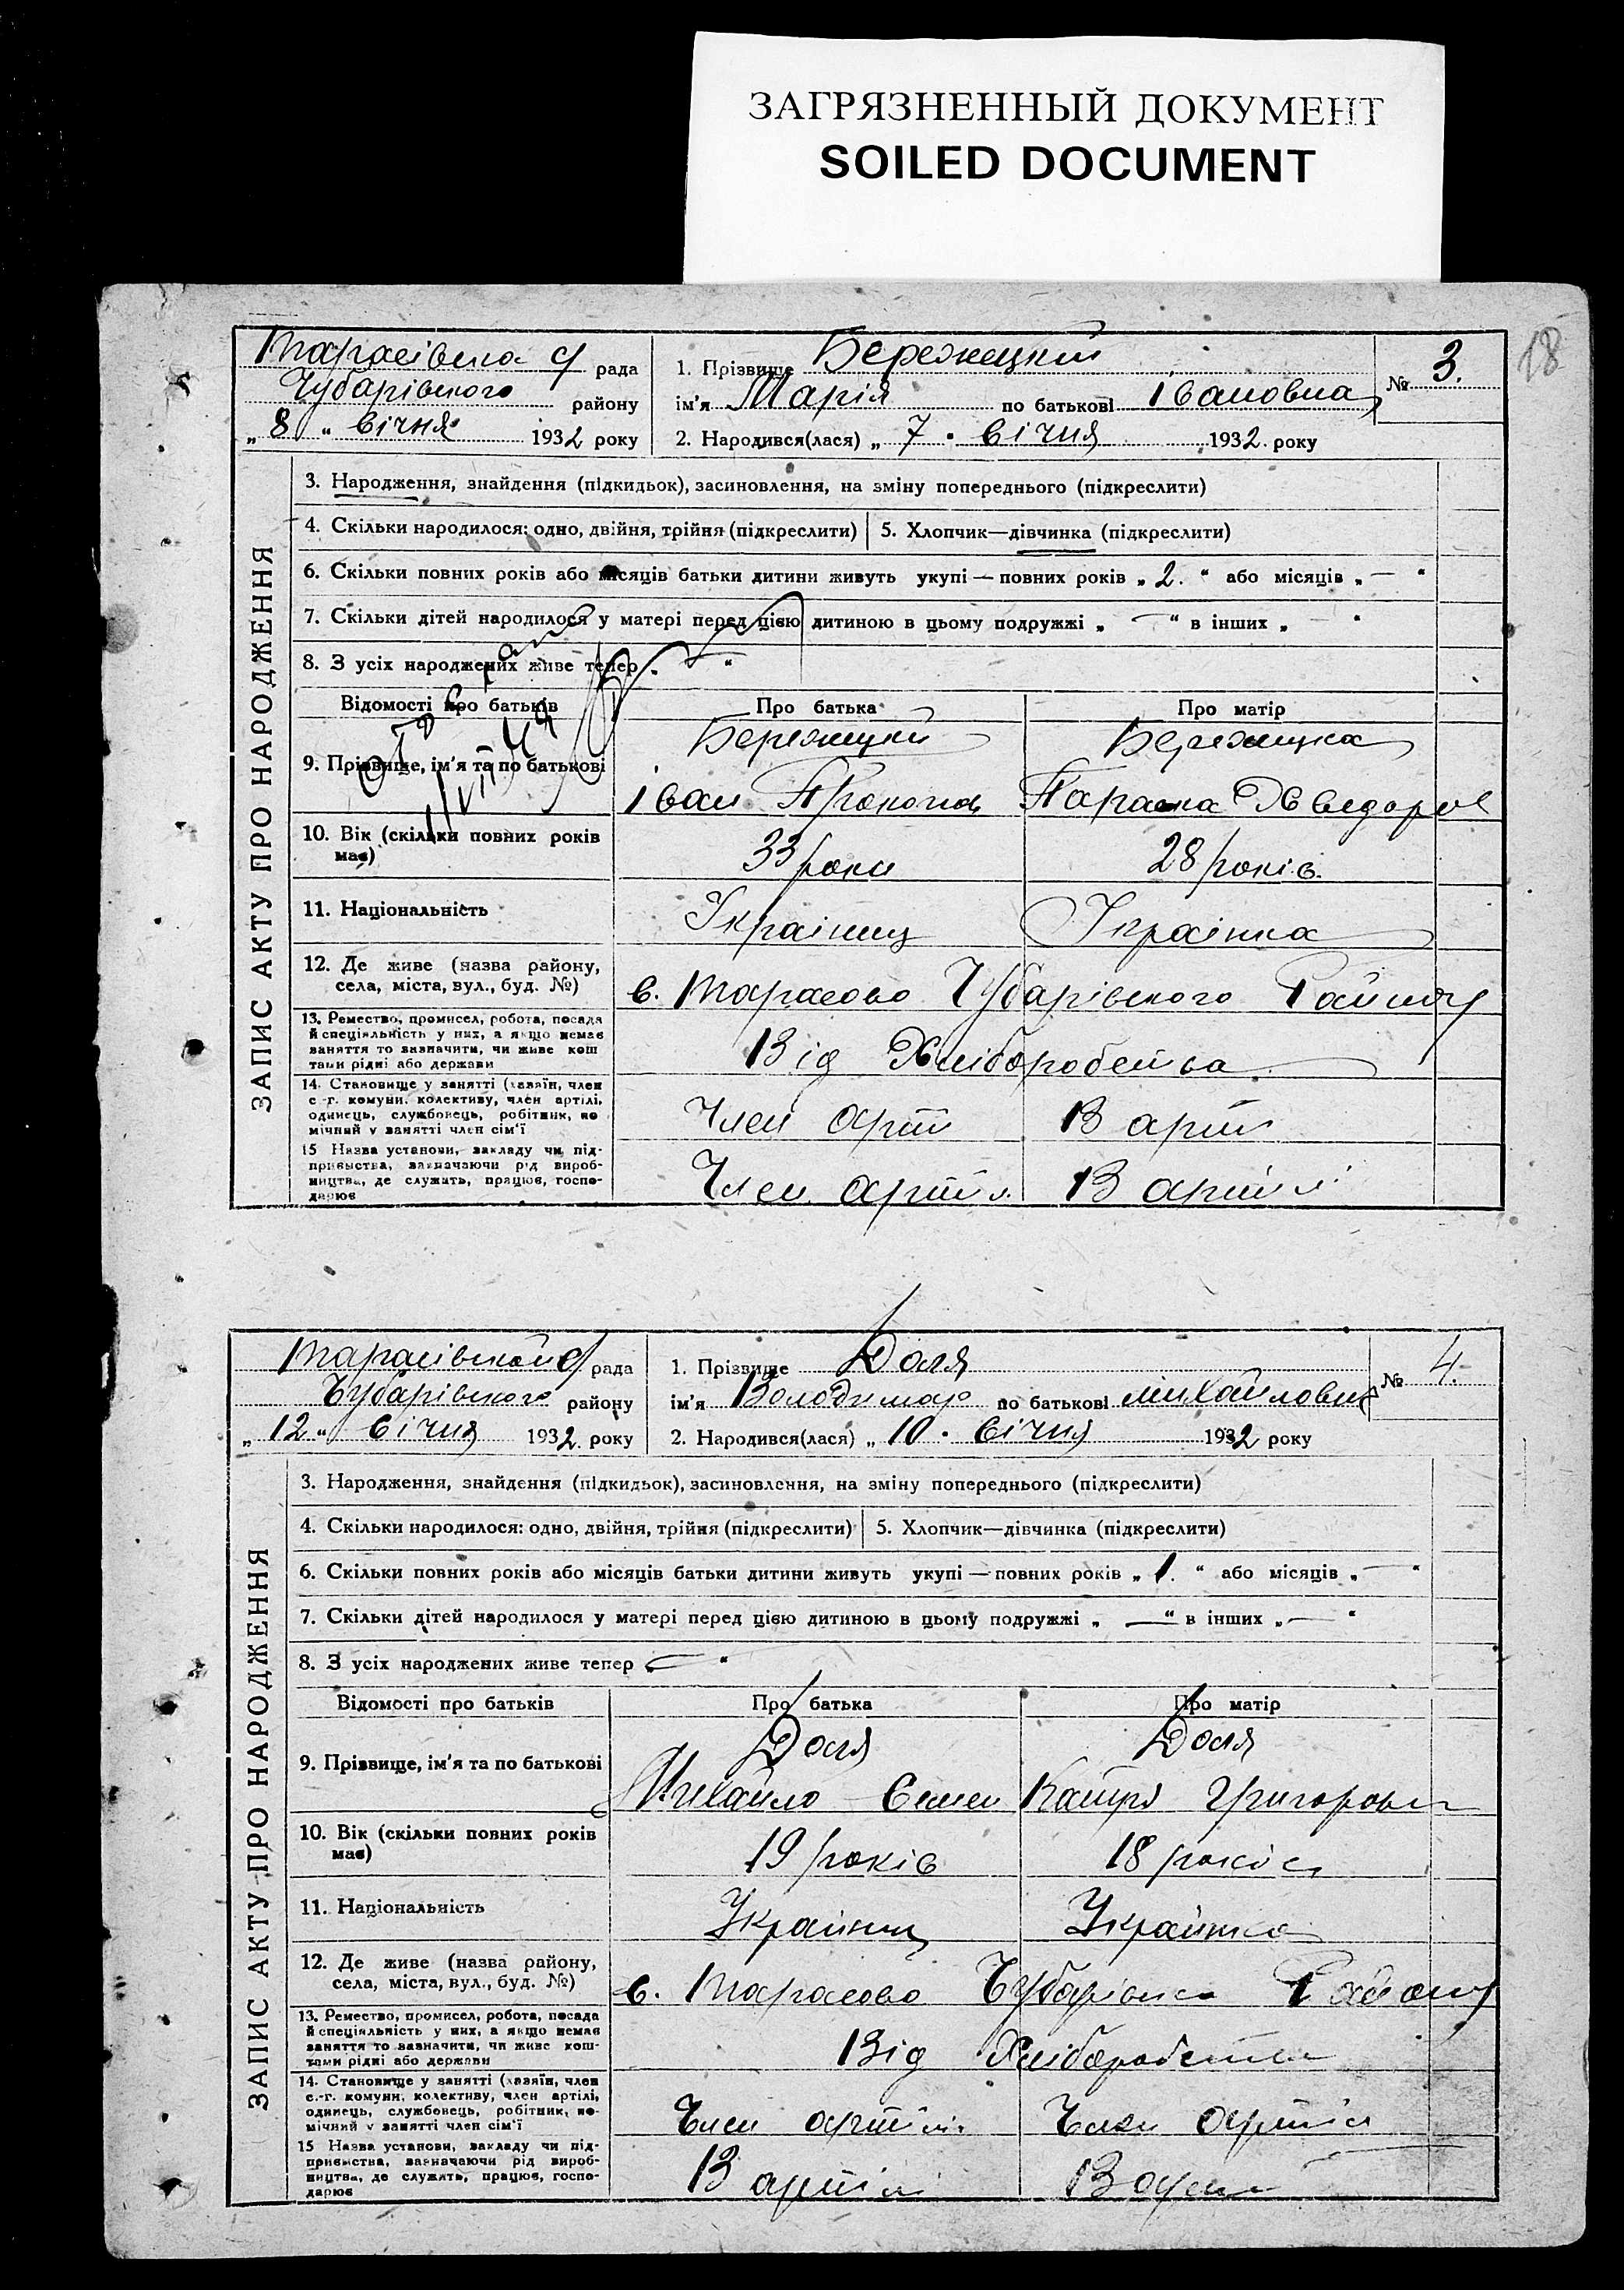 ЗАГРЯЗНЕННЫЙ ДОКУМЕНТ
SOILED DOCUMENT
18
ЗАПИС АКТУ ПРО НАРОДЖЕННЯ
Тарасівська с/ рада
Чубарівського району
„ 8 “ січня 1932 року
1. Прізвище Бережецкий
ім'я Марія по батькові Івановна
№ 3.
2. Народився(лася) „ 7 “ січня 1932 року
3. Народження, знайдення (підкидьок), засиновлення, на зміну попереднього (підкреслити)
4. Скільки народилося: одно, двійня, трійня (підкреслити) 5. Хлопчик—дівчинка (підкреслити)
6. Скільки повних років або місяців батьки дитини живуть укупі — повних років „ 2. “ або місяців „ — “
7. Скільки дітей народилося у матері перед цією дитиною в цьому подружжі „ — “ в інших „ — “
8. З усіх народжених живе тепер „ — “
Відомості про батьків Про батька Про матір
9. Прізвище, ім'я та по батькові
Бережецкий Бережецка
Іван Прокопов Параска Хведоров
10. Вік (скільки повних років має)
33 роки 28 років
11. Національність Українец Українка
12. Де живе (назва району, села, міста, вул., буд. №)
с. Тарасово Чубарівського Району
13. Ремество, промисел, робота, посада й спеціяльність у них, а якщо немає заняття то зазначити, чи живе коштами рідні або держави
Від Хліборобства
14. Становище у занятті (хазяїн, член с.-г. комуни, колективу, член артілі, одинець, службовець, робітник, помічний у занятті член сім'ї
Член арт В арт
15 Назва установи, закладу чи підприємства, зазначаючи рід виробництва, де служить, працює, господарює
Член артіл В артілі
ЗАПИС АКТУ ПРО НАРОДЖЕННЯ
Тарасівської с/ рада
Чубарівського району
„ 12 “ січня 1932 року
1. Прізвище Доля
ім'я Володимир по батькові Михайлович
№ 4.
2. Народився(лася) „ 10 “ січня 1932 року
3. Народження, знайдення (підкидьок), засиновлення, на зміну попереднього (підкреслити)
4. Скільки народилося: одно, двійня, трійня (підкреслити) 5. Хлопчик—дівчинка (підкреслити)
6. Скільки повних років або місяців батьки дитини живуть укупі — повних років „ 1. “ або місяців „ — “
7. Скільки дітей народилося у матері перед цією дитиною в цьому подружжі „ — “ в інших „ — “
8. З усіх народжених живе тепер „ — “
Відомості про батьків Про батька Про матір
9. Прізвище, ім'я та по батькові
Доля Доля
Михайло Семен Катря Григоровн
10. Вік (скільки повних років має)
19 років 18 років
11. Національність Українец Українка
12. Де живе (назва району, села, міста, вул., буд. №)
с. Тарасово Чубарівськ Району
13. Ремество, промисел, робота, посада й спеціяльність у них, а якщо немає заняття то зазначити, чи живе коштами рідні або держави
Від Хліборобства
14. Становище у занятті (хазяїн, член с.-г. комуни, колективу, член артілі, одинець, службовець, робітник, помічний у занятті член сім'ї
Член артілі Член артіл
15 Назва установи, закладу чи підприємства, зазначаючи рід виробництва, де служить, працює, господарює
В артілі В арті